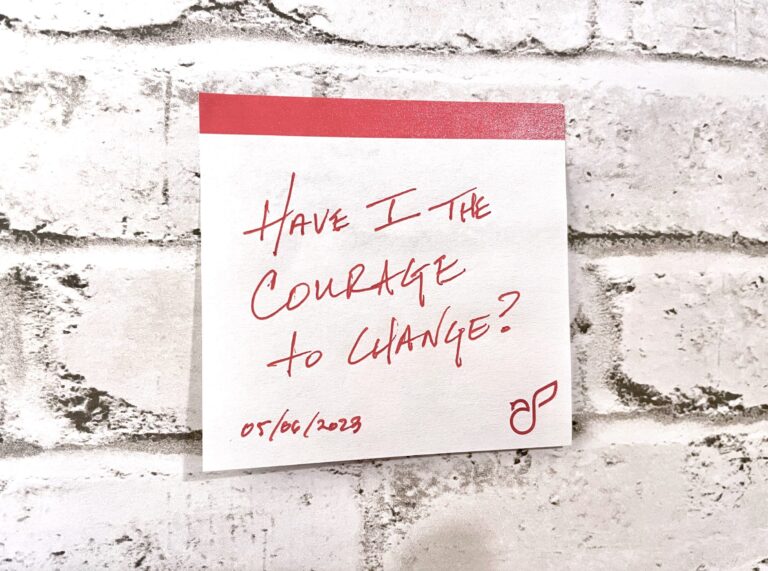 HAVE I THE
COURAGE
to CHANGE?
05/06/2023